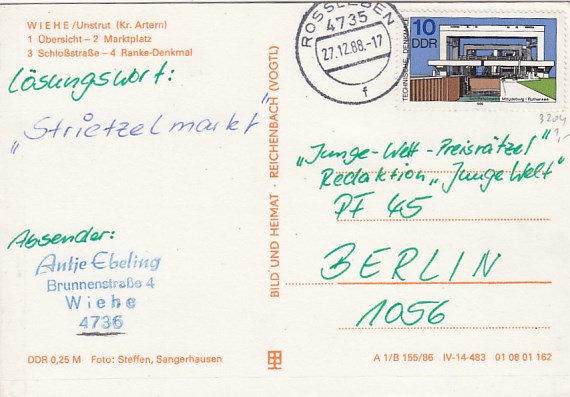 WIEHE/Unstrut (Kr. Artern)
1 Übersicht – 2 Marktplatz
3 Schloßstraße – 4 Ranke-Denkmal
Lösungswort:
„Strietzelmarkt"
Absender:
Antje Ebeling
Brunnenstraße 4
Wiehe
4736
DDR 0,25 M Foto: Steffen, Sangerhausen
BILD UND HEIMAT · REICHENBACH (VOGTL)
ROSSLEBEN
4735
27.12.88.-17
f
10
DDR
TECHNISCHE DENKMALE
Magdeburg - Rothensee
3204
1,-
„Junge-Welt-Preisrätzel"
Redaktion „Junge Welt"
PF 45
BERLIN
1056
A 1/B 155/86 IV-14-483 01 08 01 162